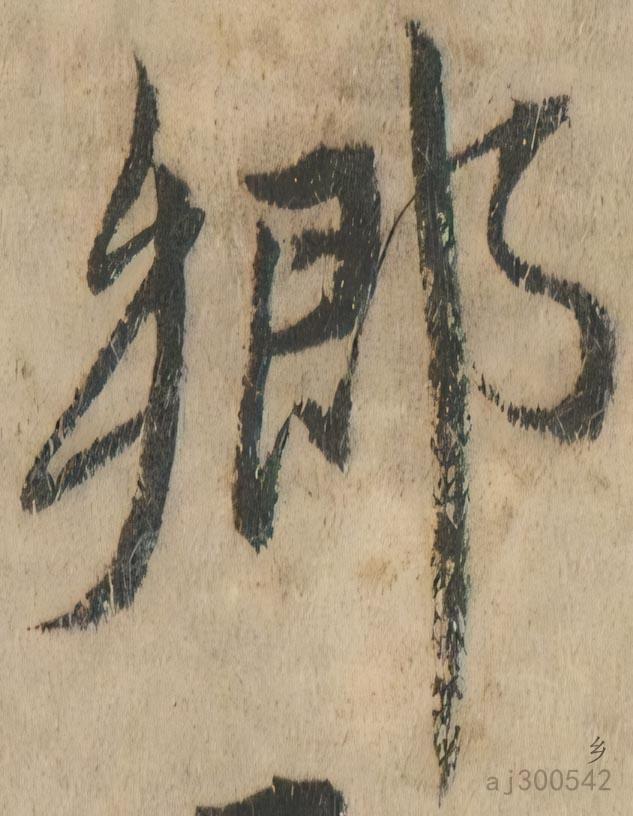 鄉
乡
aj300542